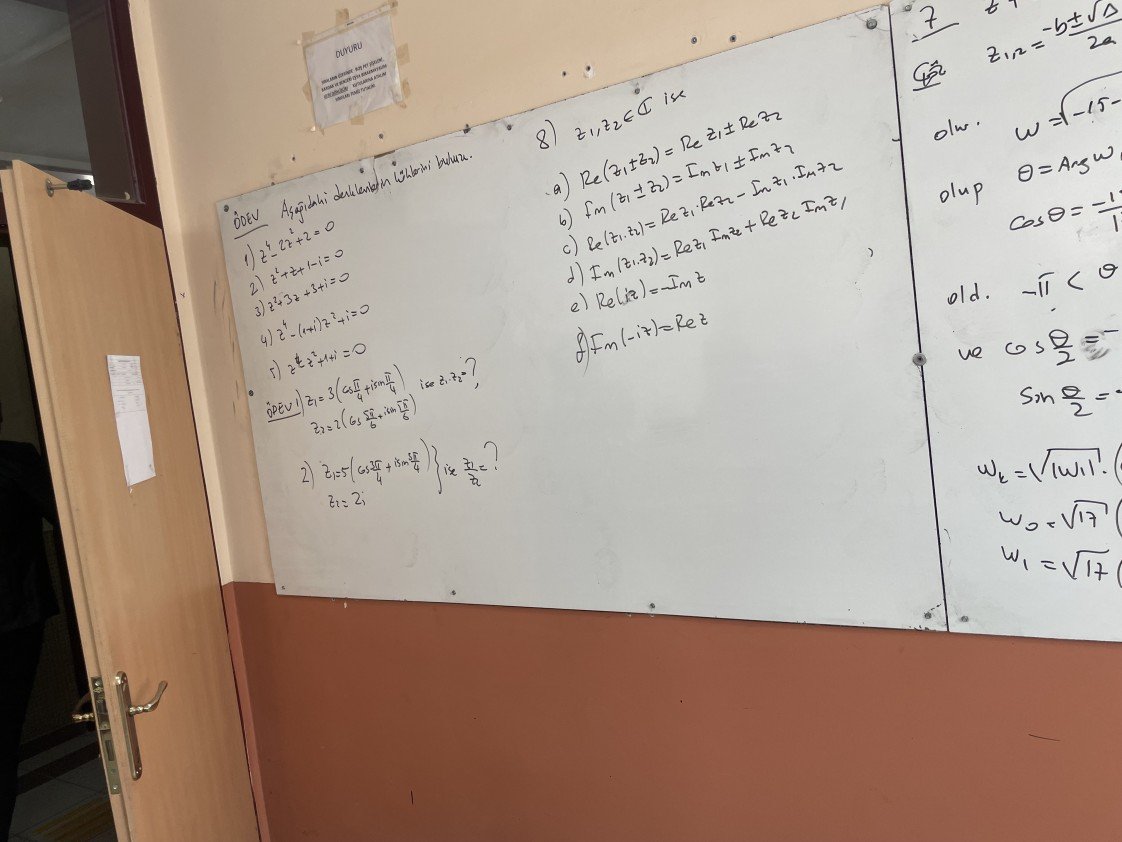 DUYURU
ÖDEV Aşağıdaki denklemlerin köklerini bulunuz.
1) z⁴-2z²+2=0
2) z²+z+1-i=0
3) z²+3z+3+i=0
4) z⁴-(1+i)z²+i=0
5) z⁴ z²+1+i=0
ÖDEV 1) z₁=3(cos π/4+isin π/4) ise z₁.z₂=?
z₂=2(cos 5π/6+isin 5π/6)
2) z₁=5(cos 3π/4+isin 3π/4) } ise z₁/z₂=?
z₂=2i
8) z₁,z₂∈ℂ ise
a) Re(z₁±z₂)=Re z₁±Re z₂
b) Im(z₁±z₂)=Im z₁±Im z₂
c) Re(z₁.z₂)=Re z₁.Re z₂-Im z₁.Im z₂
d) Im(z₁.z₂)=Re z₁ Im z₂+Re z₂ Im z₁
e) Re(iz)=-Im z
f) Im(-iz)=Re z
7
z₁,₂=-b±√Δ/2a
olur. w=√-15-
olup θ=Arg w
cosθ=-1
old. -π<θ
ve cos θ/2=-
Sin θ/2=-
wₖ=√|w|.(
w₀=√17(
w₁=√17(